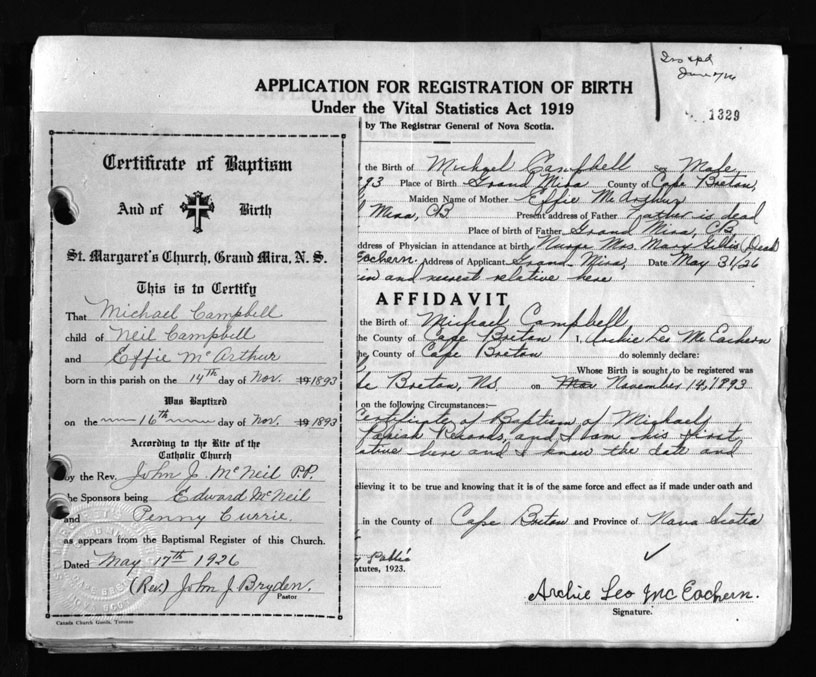 Iss & pd
June 7/26
1329
APPLICATION FOR REGISTRATION OF BIRTH
Under the Vital Statistics Act 1919
by The Registrar General of Nova Scotia.
the Birth of Michael Campbell Male
93 Place of Birth Grand Mira County of Cape Breton,
Maiden Name of Mother Effie McArthur
Mira, CB Present address of Father Father is dead
Place of birth of Father Grand Mira, CB
ddress of Physician in attendance at birth Nurse Mrs. Mary Gillis (Dead)
Eachern. Address of Applicant Grand Mira, Date May 31/26
kin and nearest relative here
AFFIDAVIT
the Birth of Michael Campbell
he County of Cape Breton I, Archie Leo McEachern
he, County of Cape Breton do solemnly declare:
Whose Birth is sought to be registered was
pe Breton, N.S. on Nov. November 14, 1893
on the following Circumstances:—
Certificate of Baptism of Michael,
Parish Records, and I am his first
ative here and I know the date and
elieving it to be true and knowing that it is of the same force and effect as if made under oath and
in the County of Cape Breton and Province of Nova Scotia
Public
atutes, 1923.
Archie Leo McEachern.
Signature.
Certificate of Baptism
And of Birth
St. Margaret's Church, Grand Mira, N. S.
This is to Certify
That Michael Campbell
child of Neil Campbell
and Effie McArthur
born in this parish on the 14th day of Nov. 19 1893
Was Baptized
on the 16th day of Nov. 19 1893
According to the Rite of the
Catholic Church
by the Rev. John J. McNeil P.P.
the Sponsors being Edward McNeil
and Penny Currie.
as appears from the Baptismal Register of this Church.
Dated May 17th 1926
(Rev.) John J Bryden.
Pastor
Canada Church Goods, Toronto